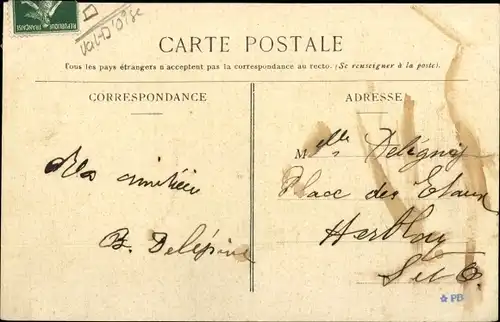 Val-D'Oise
RÉPUBLIQUE FRANÇAISE
CARTE POSTALE
Tous les pays étrangers n'acceptent pas la correspondance au recto. (Se renseigner à la poste).
CORRESPONDANCE
ADRESSE
Melle Deligny
Place des Etaux
Herblay
S et O.
amitiés
B. Delépine
PB